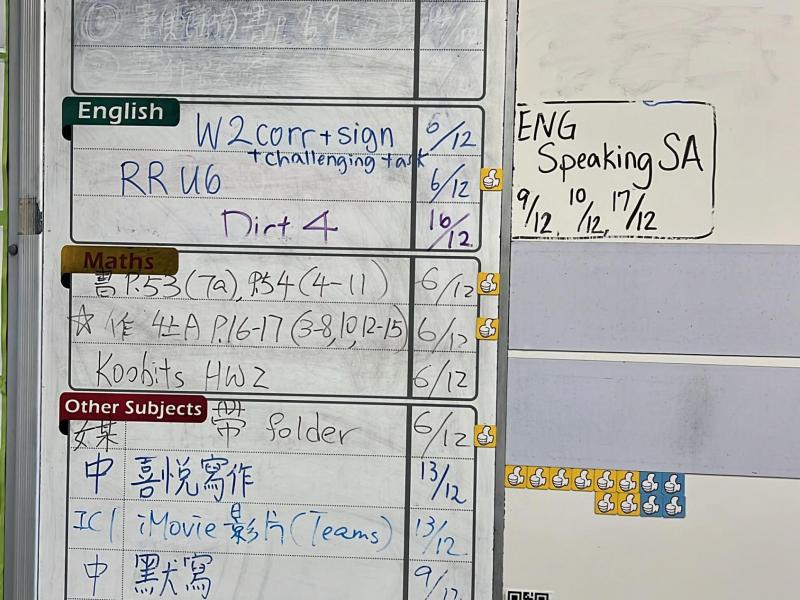 English
W2 corr + sign 6/12
+ challenging task
RR U6 6/12
Dict 4 16/12
Maths
書 P.53 (7a), P.54 (4-11) 6/12
☆ 作 4上A P.16-17 (3-8, 10, 12-15) 6/12
Koobits HW2 6/12
Other Subjects
媒 帶 folder 6/12
中 喜悅寫作 13/12
IC iMovie 影片 (Teams) 13/12
中 默寫 9/12
ENG
Speaking SA
9/12, 10/12, 17/12